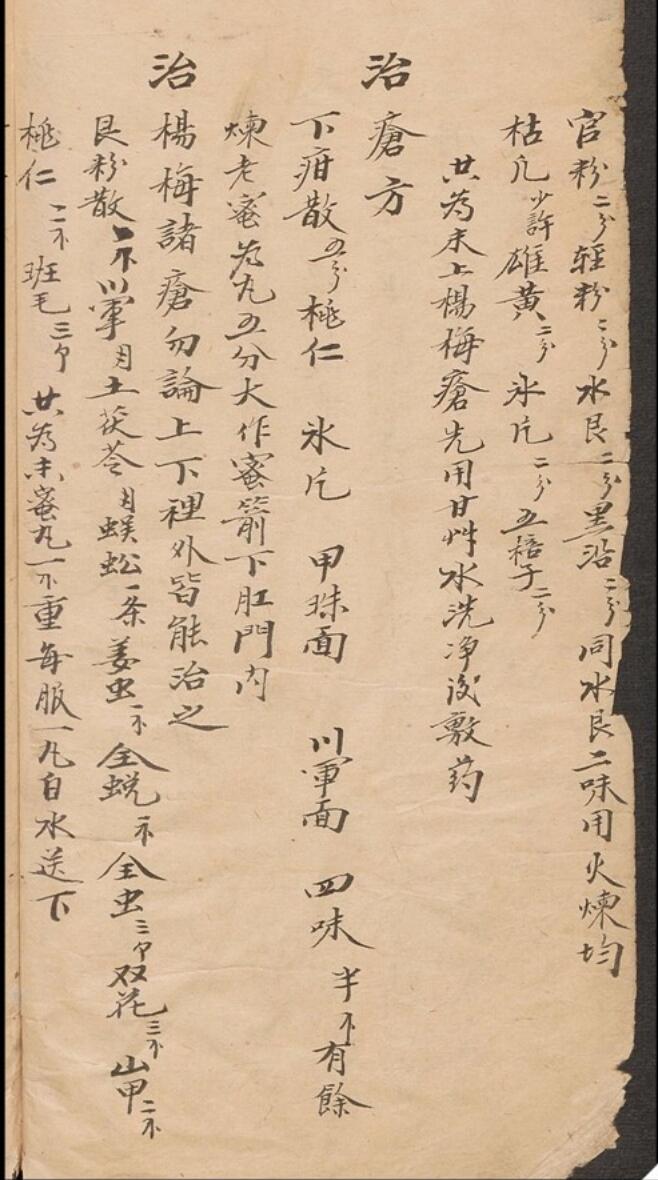 官粉二分輕粉二分水艮二分黑沿二分同水艮二味用火煉均
枯凡少許雄黃二分氷片二分五棓子二分
共為末上楊梅瘡先用甘艸水洗净後敷药
治瘡方
下疳散五分桃仁 氷片 甲珠面 川軍面 四味半不有餘
煉老蜜為丸五分大作蜜箭下肛門內
治楊梅諸瘡勿論上下裡外皆能治之
艮粉散一不川軍月土茯苓月蜈蚣一条姜虫一不全蜕一不全虫三个双花三不山甲二不
桃仁二不班毛三个共為末蜜丸一不重每服一丸白水送下